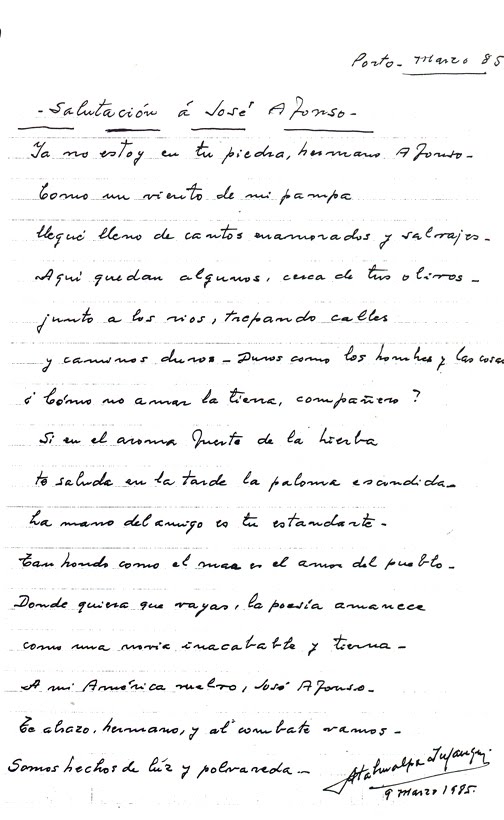 Porto - Marzo 85
- Salutación á José Afonso -
Ya no estoy en tu piedra, hermano Afonso -
Como un viento de mi pampa
llegué lleno de cantos enamorados y salvajes -
Aquí quedan algunos, cerca de tus olivos -
junto a los rios, trepando calles
y caminos duros - Duros como los hombres y las cosas
¿Cómo no amar la tierra, compañero?
Si en el aroma fuerte de la hierba
te saluda en la tarde la paloma escondida -
La mano del amigo es tu estandarte -
Tan hondo como el mar es el amor del pueblo -
Donde quiera que vayas, la poesía amanece
como una novia inacabable y tierna -
A mi América vuelvo, José Afonso -
Te abazo, hermano, y al combate vamos -
Somos hechos de lúz y polvareda -
Atahualpa Yupanqui
9 marzo 1985.